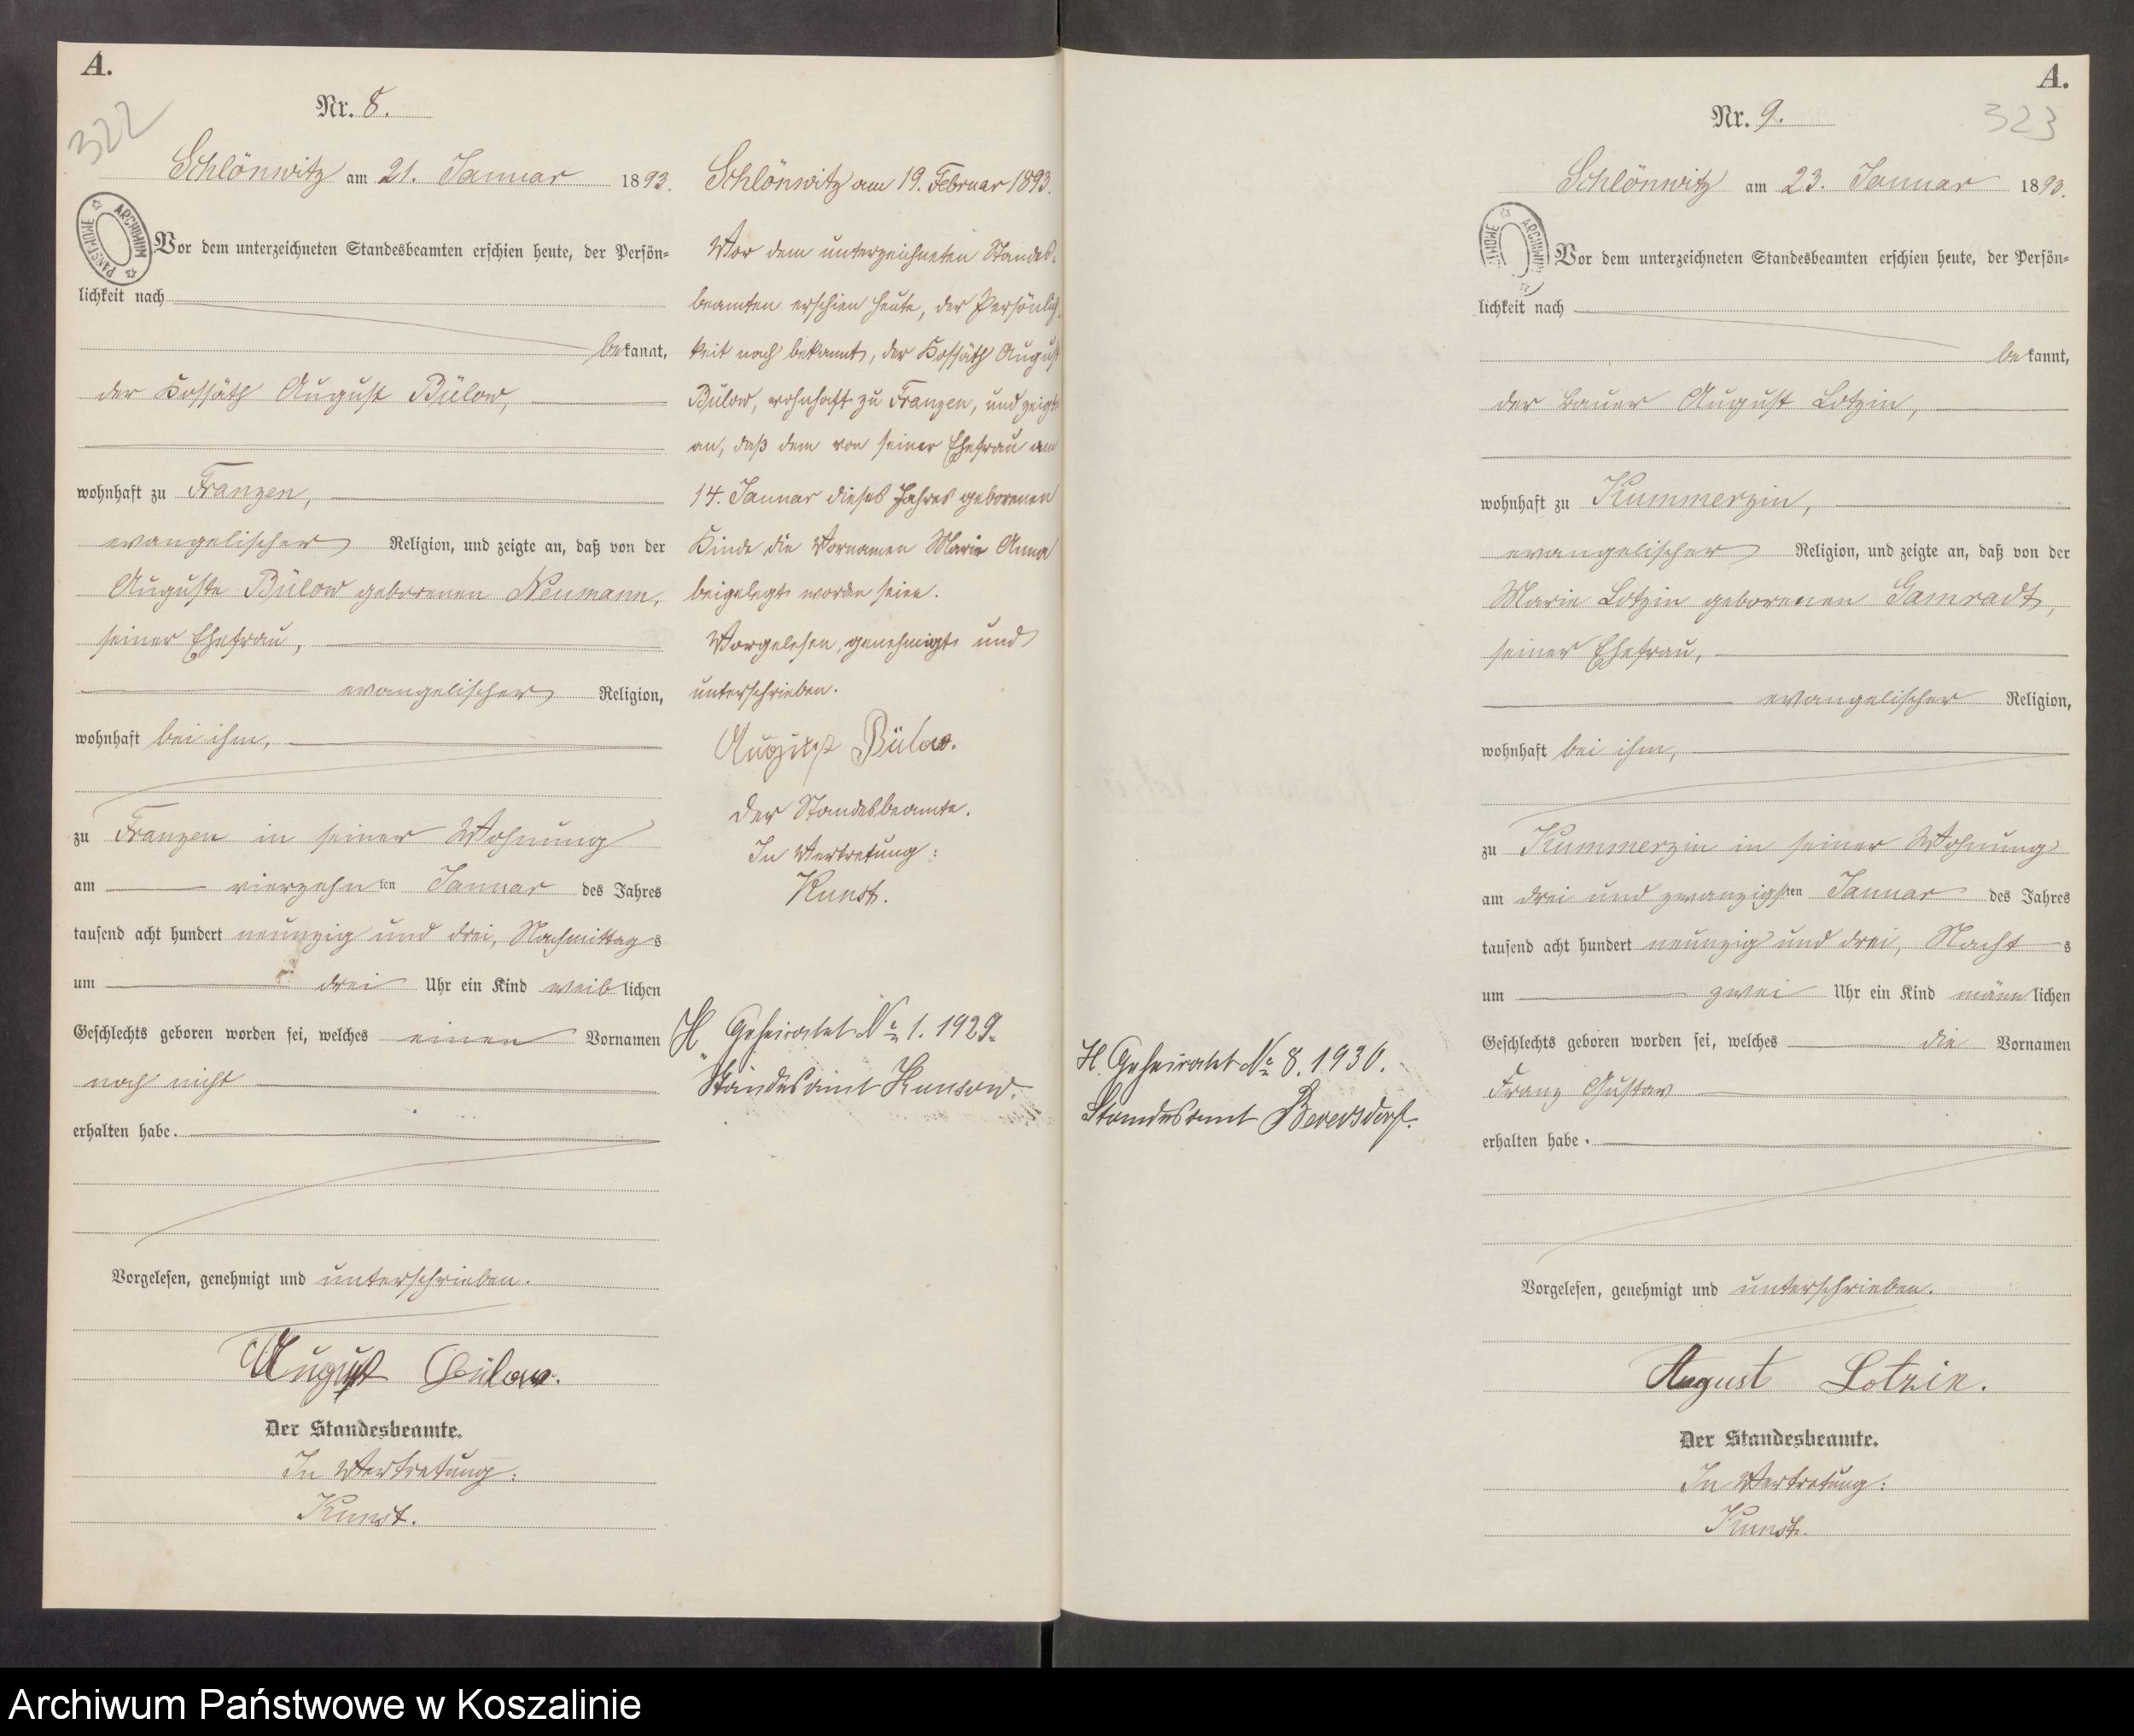 A.
322
Nr. 8.
Schlönwitz am 21. Januar 1893.
ARCHIWUM PAŃSTWOWE
Vor dem unterzeichneten Standesbeamten erschien heute, der Persön-
lichkeit nach
bekannt,
der Kossäth August Bülow,
wohnhaft zu Franzen,
evangelischer Religion, und zeigte an, daß von der
Auguste Bülow geborenen Neumann,
seiner Ehefrau,
evangelischer Religion,
wohnhaft bei ihm,
zu Franzen in seiner Wohnung
am vierzehnten Januar des Jahres
tausend acht hundert neunzig und drei, Nachmittags
um drei Uhr ein Kind weiblichen
Geschlechts geboren worden sei, welches einen Vornamen
noch nicht
erhalten habe.
Vorgelesen, genehmigt und unterschrieben.
August Bülow.
Der Standesbeamte.
In Vertretung:
Kunst.
Schlönwitz am 19. Februar 1893.
Vor dem unterzeichneten Standes-
beamten erschien heute, der Persönlich-
keit nach bekannt, der Kossäth August
Bülow, wohnhaft zu Franzen, und zeigte
an, daß dem von seiner Ehefrau am
14. Januar dieses Jahres geborenen
Kinde die Vornamen Marie Anna
beigelegt worden seien.
Vorgelesen, genehmigt und
unterschrieben.
August Bülow.
Der Standesbeamte.
In Vertretung:
Kunst.
H. Geheiratet No 1. 1929.
Standesamt Kunsow.
H. Geheiratet No 8. 1930.
Standesamt Beversdorf.
A.
323
Nr. 9.
Schlönwitz am 23. Januar 1893.
Vor dem unterzeichneten Standesbeamten erschien heute, der Persön-
lichkeit nach
bekannt,
der Bauer August Lotzin,
wohnhaft zu Kummerzin,
evangelischer Religion, und zeigte an, daß von der
Marie Lotzin geborenen Gamradt,
seiner Ehefrau,
evangelischer Religion,
wohnhaft bei ihm,
zu Kummerzin in seiner Wohnung
am drei und zwanzigsten Januar des Jahres
tausend acht hundert neunzig und drei, Nachts
um zwei Uhr ein Kind männlichen
Geschlechts geboren worden sei, welches die Vornamen
Franz Gustav
erhalten habe.
Vorgelesen, genehmigt und unterschrieben.
August Lotzin.
Der Standesbeamte.
In Vertretung:
Kunst.
Archiwum Państwowe w Koszalinie